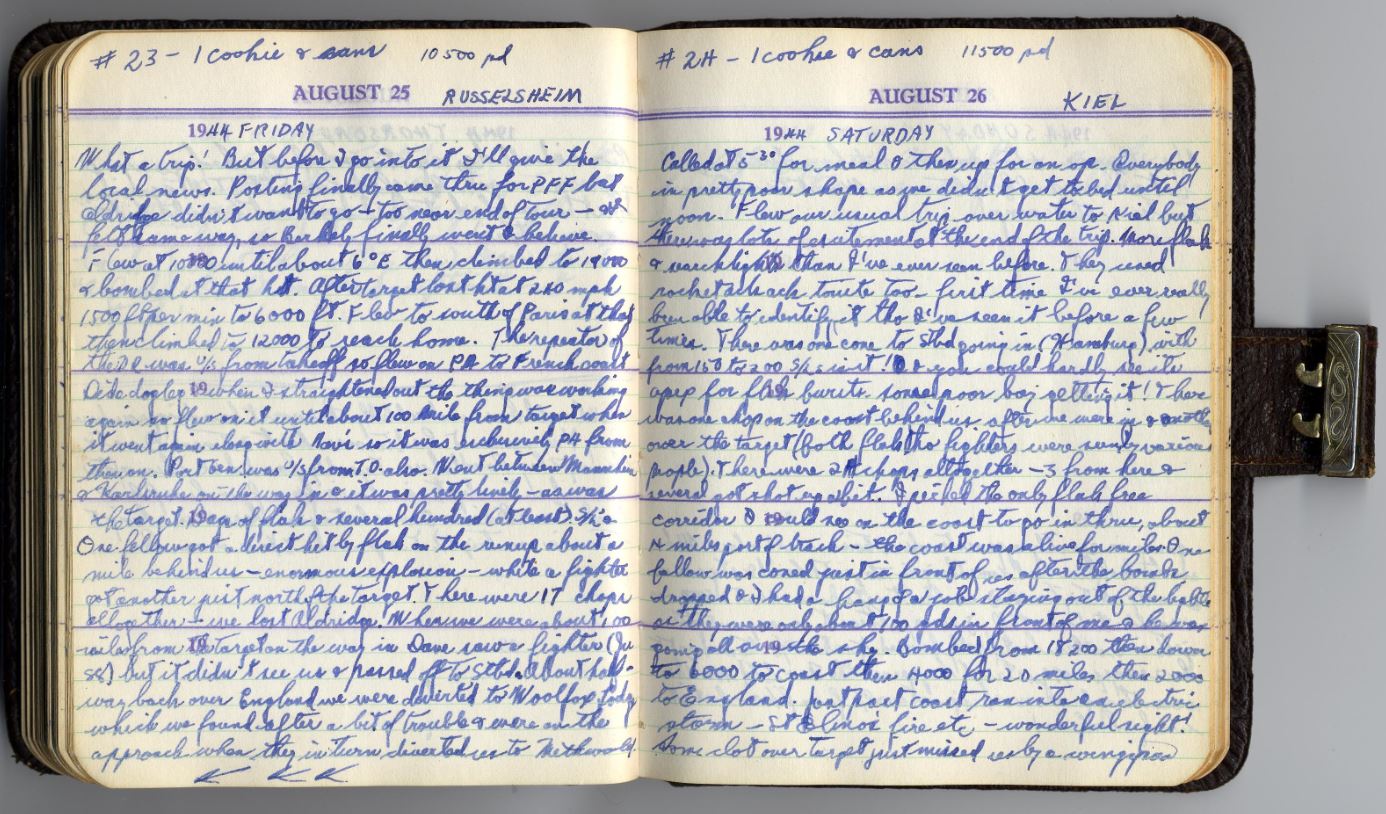 # 23 - 1 cookie & cans 10500 pd
AUGUST 25 RUSSELSHEIM
1944 FRIDAY
What a trip! But before I go into it I'll give the
local news. Posting finally came thru for PFF but
Aldridge didn't want to go - too near end of tour -
felt same way, so Berkely finally went I believe.
Flew at 10000 until about 6°E then climbed to 18000
& bombed at that ht. After target lost ht at 240 mph
1500 ft per min to 6000 ft. Flew to south of Paris at that
then climbed to 12000 to reach home. The repeator of
the DR was U/S from takeoff so flew on PA to French coast
Did a dogleg & when I straightened out the thing was working
again so flew on it until about 100 mile from target when
it went again along with so it was exclusively PA from
then on. Port gen was U/S from T.O. also. Went between Mannheim
& Karlsruhe on the way in & it was pretty lively - as was
the target. Heaps of flak & several hundred (at least) S/L's
One fellow got a direct hit by flak on the runup about a
mile behind us - enormous explosion - while a fighter
got another just north of the target. There were 17 chops
alltogether - we lost Aldridge. When we were about 100
miles from the target on the way in Dave saw a fighter (Ju
88) but it didn't see us & passed off to Stbd. About half-
way back over England we were diverted to Woolfox Lodge
which we found after a bit of trouble & were on the
approach when they in turn diverted us to Methwold.
# 24 - 1 cookie & cans 11500 pd
AUGUST 26 KIEL
1944 SATURDAY
Called at 5-30 for meal & then up for an op. Everybody
in pretty poor shape as we didn't get to bed until
noon. Flew our usual trip over water to Kiel but
there was lots of excitement at the end of the trip. More flak
& searchlights than I've ever seen before. They used
rockets back to us too - first time I've ever really
been able to identify it tho I've seen it before a few
times. There was one cone to Stbd going in (Hamburg) with
from 150 to 200 S/Ls in it! & you could hardly see its
apex for flak bursts. some poor boy getting it! There
was one chop on the coast behind us, after we were in & another
over the target (both flak tho fighters were seen by various
people). There were 24 chops alltogether - 3 from here &
several got shot up a bit. I picked the only flak free
corridor I could see on the coast to go in thru, about
4 miles port of track - the coast was alive for miles. One
fellow was coned just in front of us after the bombs
dropped & I had a job staying out of the lights
as they were only about 100 yds in front of me & he was
going all over the sky. Bombed from 18200 then down
to 6000 to coast then 4000 for 20 miles then 2000
to England. Just past coast ran into an electric
storm - St Elmo's fire etc - wonderful sight!
Some clot over target just missed us by a wingspan